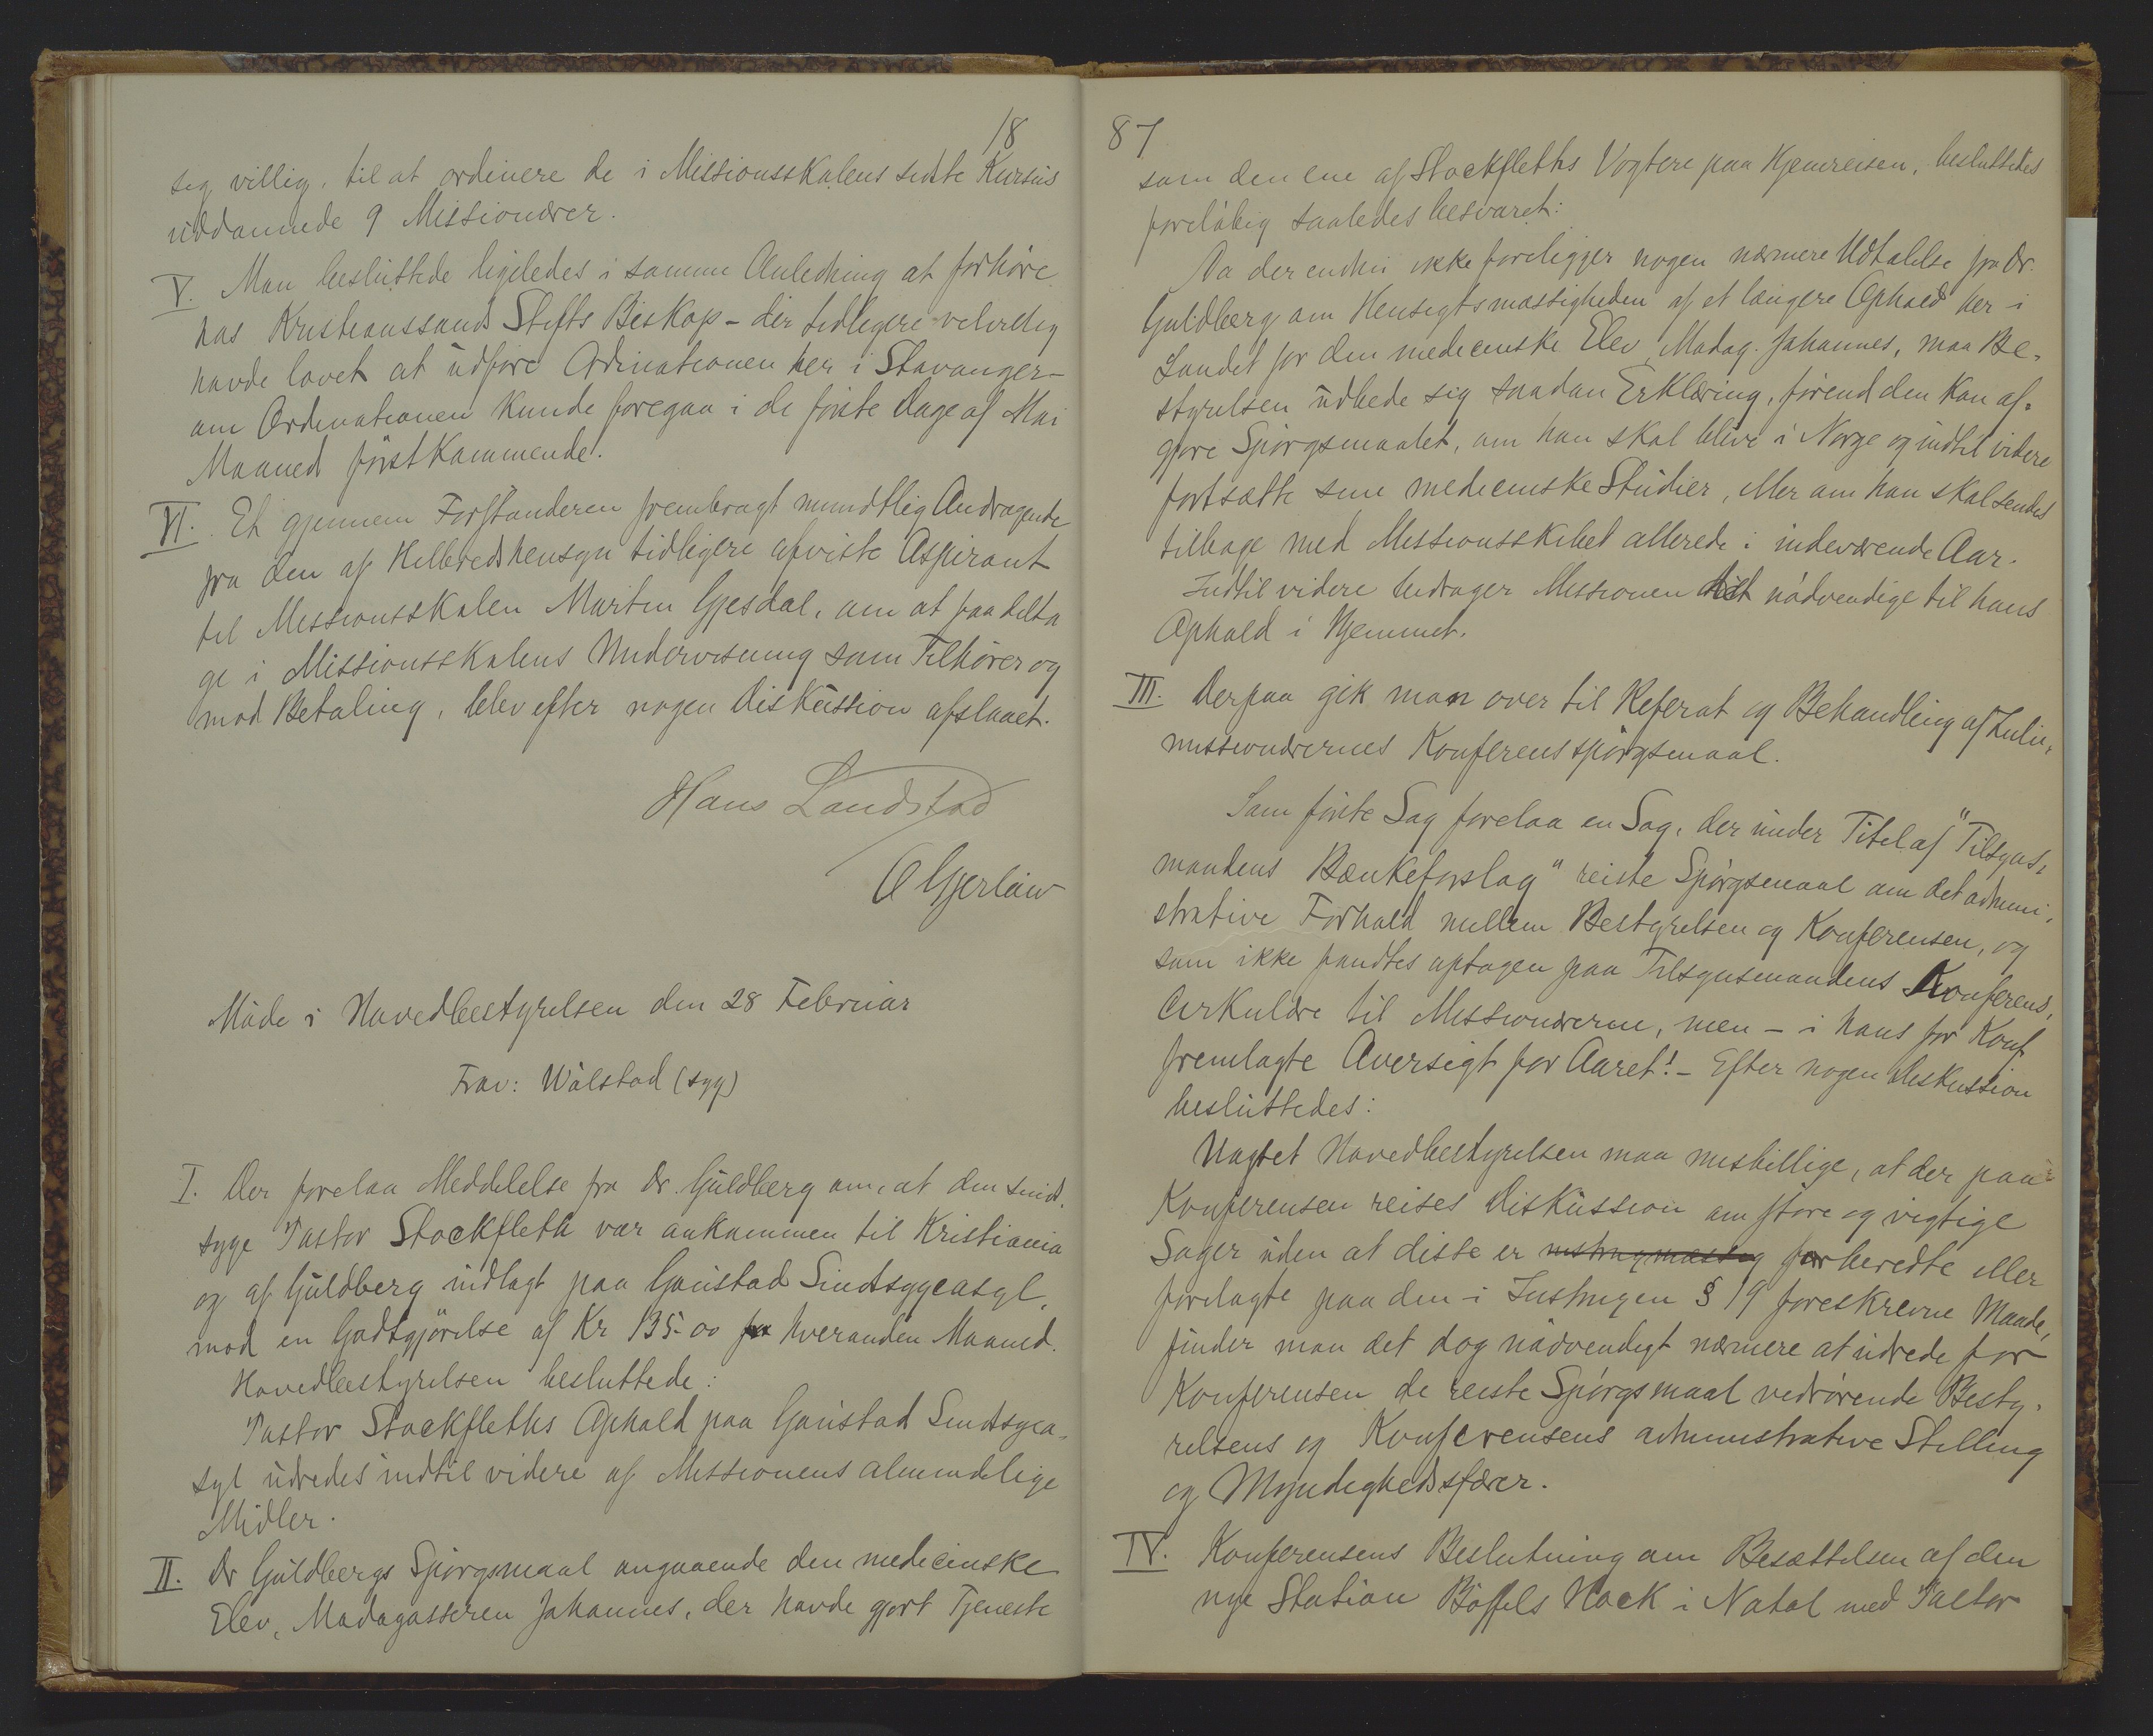 18
sig villig, til at ordinere de i Missionsskolens sidste Kursus
uddannede 9 Missionærer.
V. Man besluttede ligeledes i samme Anledning at forhøre
hos Kristianssands Stifts Biskop – der tidligere velvillig
havde lovet at udføre Ordinationen her i Stavanger –
om Ordinationen kunde foregaa i de første Dage af Mai
Maaned førstkommende.
VI. Et gjennem Forstanderen frembragt mundtlig Andragende
fra den af Helbredshensyn tidligere afviste Aspirant
til Missionsskolen Martin Gjesdal, om at faa delta
ge i Missionsskolens Undervisning som Tilhører og
mod Betaling, blev efter nogen Diskussion afslaaet.
Hans Landstad
O Gjerløw
Møde i Hovedbestyrelsen den 28 Februar
Frav: Walstad (syg)
I. Der forelaa Meddelelse fra Dr. Guldberg om, at den sinds
syge Pastor Stockfleth var ankommen til Kristiania
og af Guldberg indlagt paa Gaustad Sindssygeasyl,
mod en Godtgjørelse af Kr 135.00 for hveranden Maaned.
Hovedbestyrelsen besluttede:
Pastor Stockfleths Ophold paa Gaustad Sindssygea-
syl udredes indtil videre af Missionens almindelige
Midler.
II. Dr Guldbergs Spørgsmaal angaaende den medicinske
Elev, Madagasseren Johannes, der havde gjort Tjeneste
87
som den ene af Stockfleths Vogtere paa Hjemreisen, besluttedes
foreløbig saaledes besvaret:
Da der endnu ikke foreligger nogen nærmere Udtalelse fra Dr.
Guldberg om Hensigtsmæssigheden af et længere Ophold her i
Landet for den medicinske Elev, Madag. Johannes, maa Be-
styrelsen udbede sig saadan Erklæring, førend den kan af-
gjøre Spørgsmaalet, om han skal blive i Norge og indtil videre
fortsætte sine medicinske Studier, eller om han skal sendes
tilbage med Missionsskibet allerede i indeværende Aar.
Indtil videre bidrager Missionen det nødvendige til hans
Ophold i Hjemmet.
III. Derpaa gik man over til Referat og Behandling af Zulu-
missionærernes Konferensspørgsmaal.
Som første Sag forelaa en Sag, der under Titel af "Tilsyns-
mandens Bænkeforslag" reiste Spørgsmaal om det admini-
strative Forhold mellem Bestyrelsen og Konferensen, og
som ikke fandtes optagen paa Tilsynsmandens Konferens,
Cirkulære til Missionærerne, men – i hans for Konf.
fremlagte Oversigt for Aaret! – Efter nogen Diskussion
besluttedes:
Uagtet Hovedbestyrelsen maa misbillige, at der paa
Konferensen reises Diskussion om store og vigtige
Sager uden at disse er instruxmæssig forberedte eller
forelagte paa den i Instruxen § 19 foreskrevne Maade,
finder man det dog nødvendigt nærmere at udrede for
Konferensen de reiste Spørgsmaal vedrørende Besty-
relsens og Konferensens administrative Stilling
og Myndighedssfærer.
IV. Konferensens Beslutning om Besættelsen af den
nye Station Bøffels Hoek i Natal med Pastor